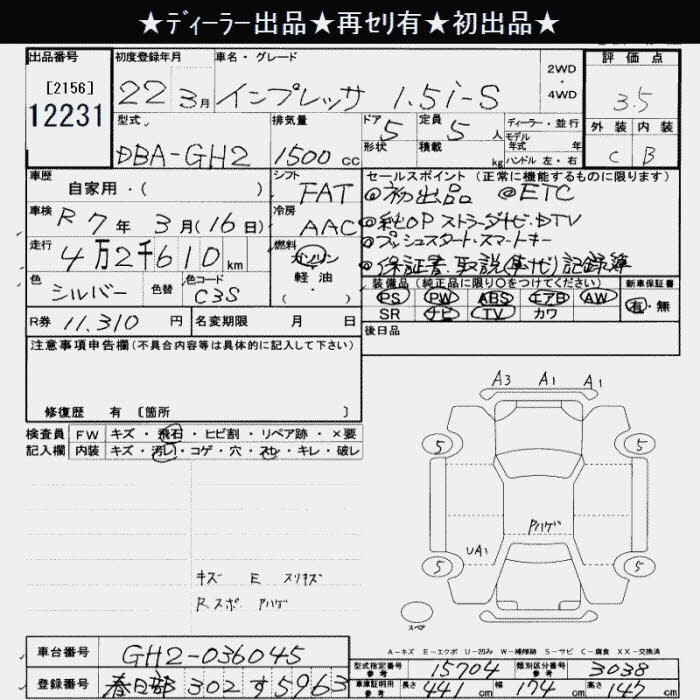 ★ディーラー出品★再セリ有★初出品★
出品番号 初度登録年月 車名・グレード 2WD・4WD 評価点
[2156]
12231
22 3月 インプレッサ 1.5i-S
3.5
型式 排気量 ドア 定員 ディーラー・並行 外装 内装
DBA-GH2 1500cc 5 5人 モデル年式 年 C B
形状 積載 kg ハンドル 左・右
車歴 自家用・( ) シフト FAT セールスポイント (正常に機能するものに限ります)
◎初出品 ◎ETC
車検 R7年3月(16日) 冷房 AAC
◎純OP ストラーダナビ・DTV
走行 4万2千610km 燃料 ガソリン・軽・油( )
◎プッシュスタート・スマートキー
◎保証書 取説(車・ナビ) 記録簿
色 シルバー 色替 色コード C3S
装備品 (純正品に限り〇をつけてください) 新車保証書
PS PW ABS エアB AW 有・無
SR ナビ TV カワ
R券 11,310円 名変期限 月 日
後日品
注意事項申告欄 (不具合内容等は具体的に記入して下さい)
修復歴 有 〔箇所 〕
検査員 FW キズ・飛石・ヒビ割・リペア跡・×要
記入欄 内装 キズ・汚レ・コゲ・穴・スレ・キレ・破レ
A3 A1 A1
5 5
Pハゲ
UA1
5 5
スペア
キズ E スリキズ
Rスポ Pハゲ
A-キズ E-エクボ U-凹み W-補修跡 S-サビ C-腐食 XX-交換済
車台番号 GH2-036045
型式指定番号 参考 15704 類別区分番号 参考 3038
登録番号 春日部 302 す 5963
車庫証明用 参考 長さ 441cm 幅 174cm 高さ 147cm